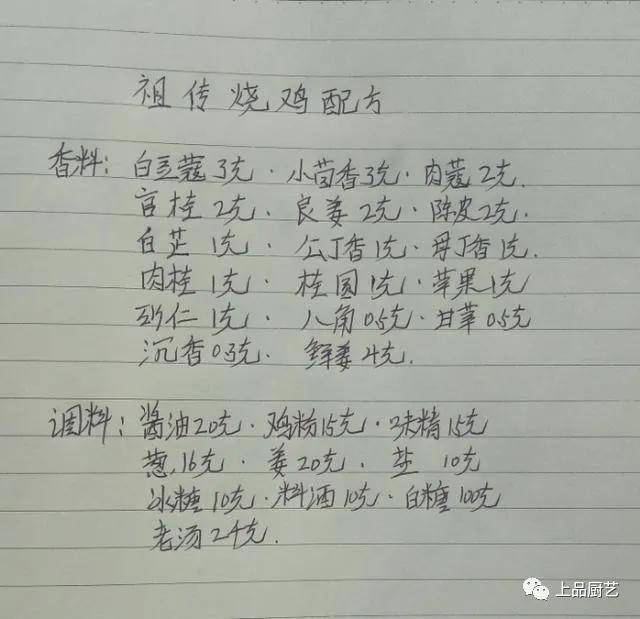 祖传烧鸡配方
香料: 白豆蔻3克·小茴香3克·肉蔻2克.
官桂2克.良姜2克·陈皮2克.
白芷1克·公丁香1克·母丁香1克.
肉桂1克·桂圆1克·苹果1克
砂仁1克·八角0.5克·甘草0.5克
沉香0.3克.鲜姜4克.
调料: 酱油20克·鸡粉15克·味精15克
葱16克·姜20克·盐10克
冰糖10克·料酒10克·白糖100克
老汤2千克.
上品厨艺